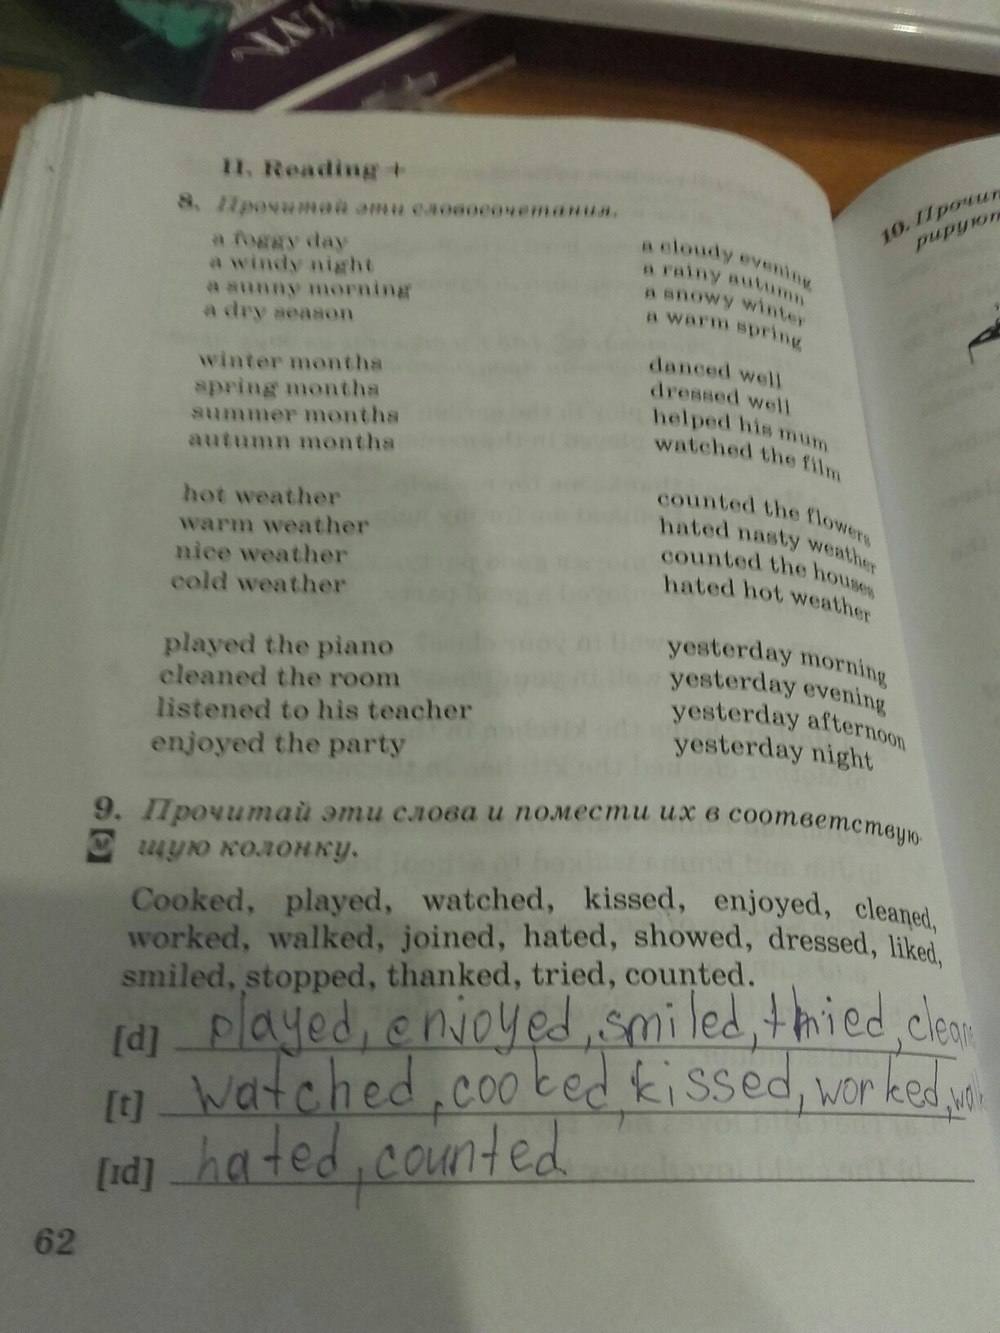 II. Reading +
8. Прочитай эти словосочетания.
a foggy day
a windy night
a sunny morning
a dry season
a cloudy evening
a rainy autumn
a snowy winter
a warm spring
winter months
spring months
summer months
autumn months
danced well
dressed well
helped his mum
watched the film
hot weather
warm weather
nice weather
cold weather
counted the flowers
hated nasty weather
counted the houses
hated hot weather
played the piano
cleaned the room
listened to his teacher
enjoyed the party
yesterday morning
yesterday evening
yesterday afternoon
yesterday night
9. Прочитай эти слова и помести их в соответствую-
щую колонку.
Cooked, played, watched, kissed, enjoyed, cleaned,
worked, walked, joined, hated, showed, dressed, liked,
smiled, stopped, thanked, tried, counted.
[d] played, enjoyed, smiled, tried, clean
[t] watched, cooked, kissed, worked, wal
[ɪd] hated, counted
62
10. Прочит
рируют